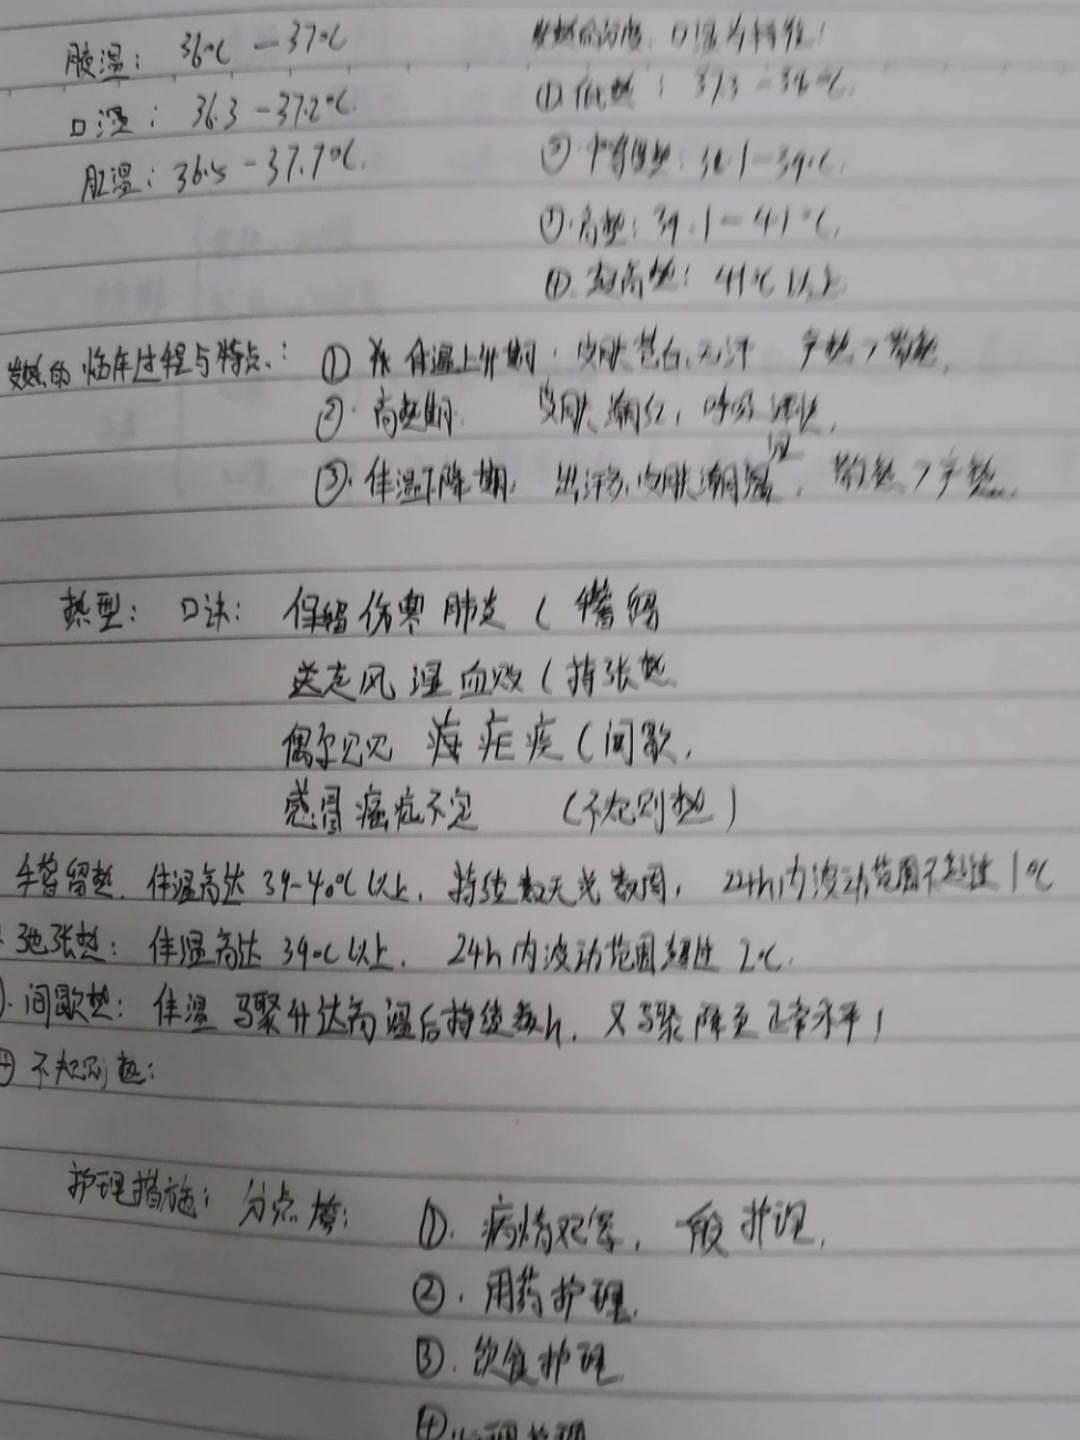 腋温： 36℃ — 37℃
口温： 36.3 — 37.2℃.
肛温：36.5 — 37.7℃.
口温为标准！
①.低热： 37.3 — 38℃.
②.中等度热：38.1—39℃.
③.高热：39.1—41℃.
④.超高热：41℃以上
发热的临床过程与特点.： ① 体温上升期：皮肤苍白.无汗 产热>散热.
②. 高热期. 皮肤潮红，呼吸
③. 体温下降期. 出汗多.皮肤潮湿. 散热>产热.
热型： 口诀： 伤寒肺炎（稽留
风湿血败（ 张热
偶尔见见 疟疾（间歇.
感冒癌症不定 （不规则热）
稽留热. 体温高达 39-40℃以上. 持续数天或数周， 24h内波动范围不超过1℃
弛张热： 体温高达 39℃以上. 24h内波动范围超过 2℃.
间歇热： 体温 骤升达高温后持续数h. 又骤降至正常水平！
④ 不规则热：
护理措施： 分点答： ①. 病情观察，一般护理.
②. 用药护理.
③. 饮食护理
④心理护理